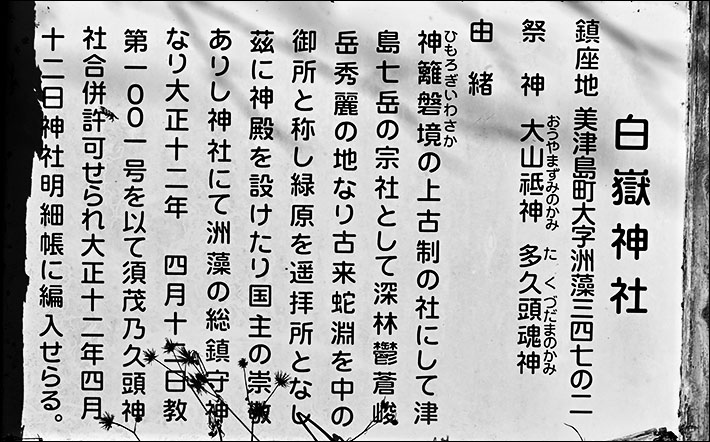 白嶽神社
鎮座地 美津島町大字洲藻三四七の二
祭神 大山祗神 多久頭魂神
おうやまずみのかみ たくづだまのかみ
由緒
神籬磐境の上古制の社にして津
ひもろぎいわさか
島七岳の宗社として深林鬱蒼峻
岳秀麗の地なり古来蛇淵を中の
御所と称し緑原を遥拝所となし
茲に神殿を設けたり国主の崇敬
ありし神社にて洲藻の総鎮守神
なり大正十二年 四月十二日教
第一00一号を以て須茂乃久頭神
社合併許可せられ大正十二年四月
十二日神社明細帳に編入せらる。